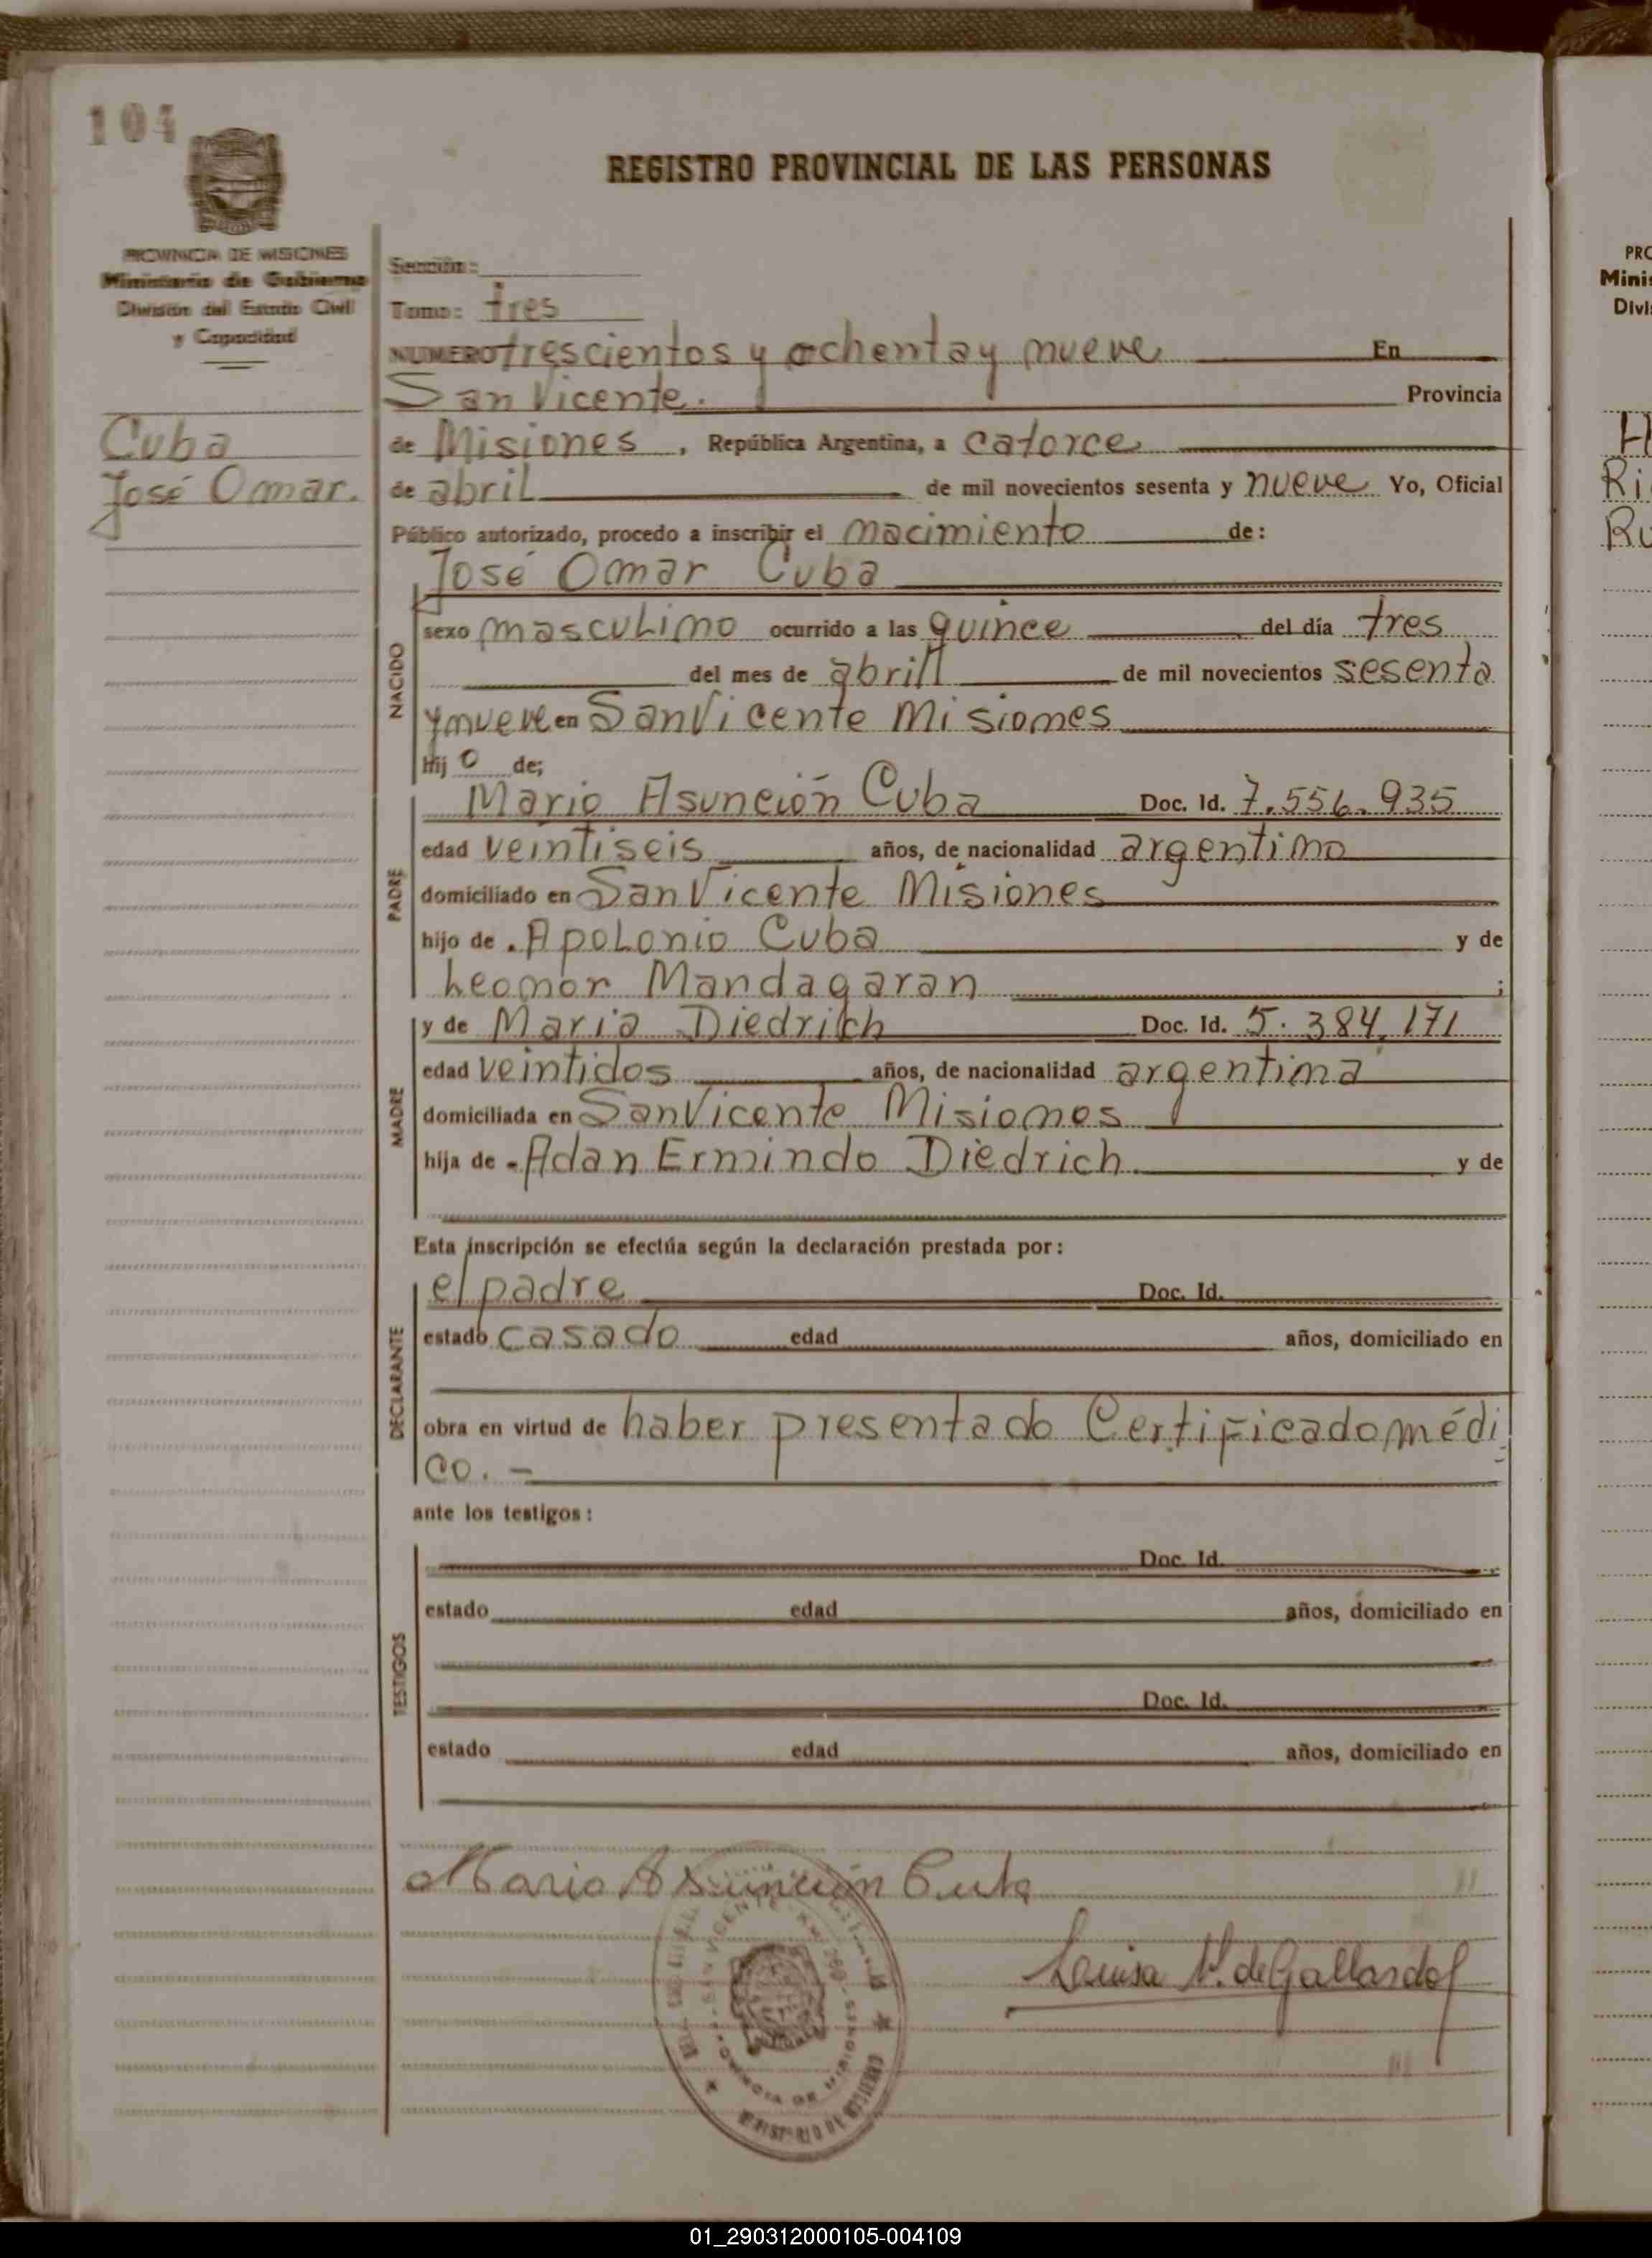 104
REGISTRO PROVINCIAL DE LAS PERSONAS
PROVINCIA DE MISIONES
Ministerio de Gobierno
División del Estado Civil
y Capacidad
Cuba
José Omar.
Sección:
Tomo: tres
NUMERO trescientos y ochenta y nueve En
San Vicente. Provincia
de Misiones, República Argentina, a catorce
de abril de mil novecientos sesenta y nueve Yo, Oficial
Público autorizado, procedo a inscribir el nacimiento de:
José Omar Cuba
NACIDO
sexo masculino ocurrido a las quince del día tres
del mes de abrill de mil novecientos sesenta
y nueve en San Vicente Misiones
Hij o de;
PADRE
Mario Asunción Cuba Doc. Id. 7.556.935
edad veintiseis años, de nacionalidad argentino
domiciliado en San Vicente Misiones
hijo de Apolonio Cuba y de
Leonor Mandagaran ;
MADRE
y de Maria Diedrich Doc. Id. 5.384.171
edad veintidos años, de nacionalidad argentina
domiciliada en San Vicente Misiones
hija de Adan Ermindo Diedrich y de
Esta inscripción se efectúa según la declaración prestada por:
DECLARANTE
el padre Doc. Id.
estado casado edad años, domiciliado en
obra en virtud de haber presentado Certificado médi
co. -
ante los testigos:
TESTIGOS
Doc. Id.
estado edad años, domiciliado en
Doc. Id.
estado edad años, domiciliado en
Mario Asunción Cuba
Luisa de Gallardo
SAN VICENTE
PROVINCIA DE MISIONES
MINISTERIO DE
PRO
Minis
Divi
H
Ri
Ru
01_290312000105-004109